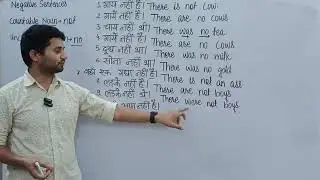 Negative Sentences
Countable Noun + not
1. गाय नहीं है। There is not Cow.
2. गायें नहीं हैं। There are no Cows
3. चाय नहीं थी। There was no tea
4. गायें नहीं हैं। There are no Cows
5. दूध नहीं था। There was no milk
6. सोना नहीं था। There was no gold
There is not an ass
8. लड़के नहीं हैं। There are not boys
9. लड़के नहीं थे। There were not boys
नहीं है।